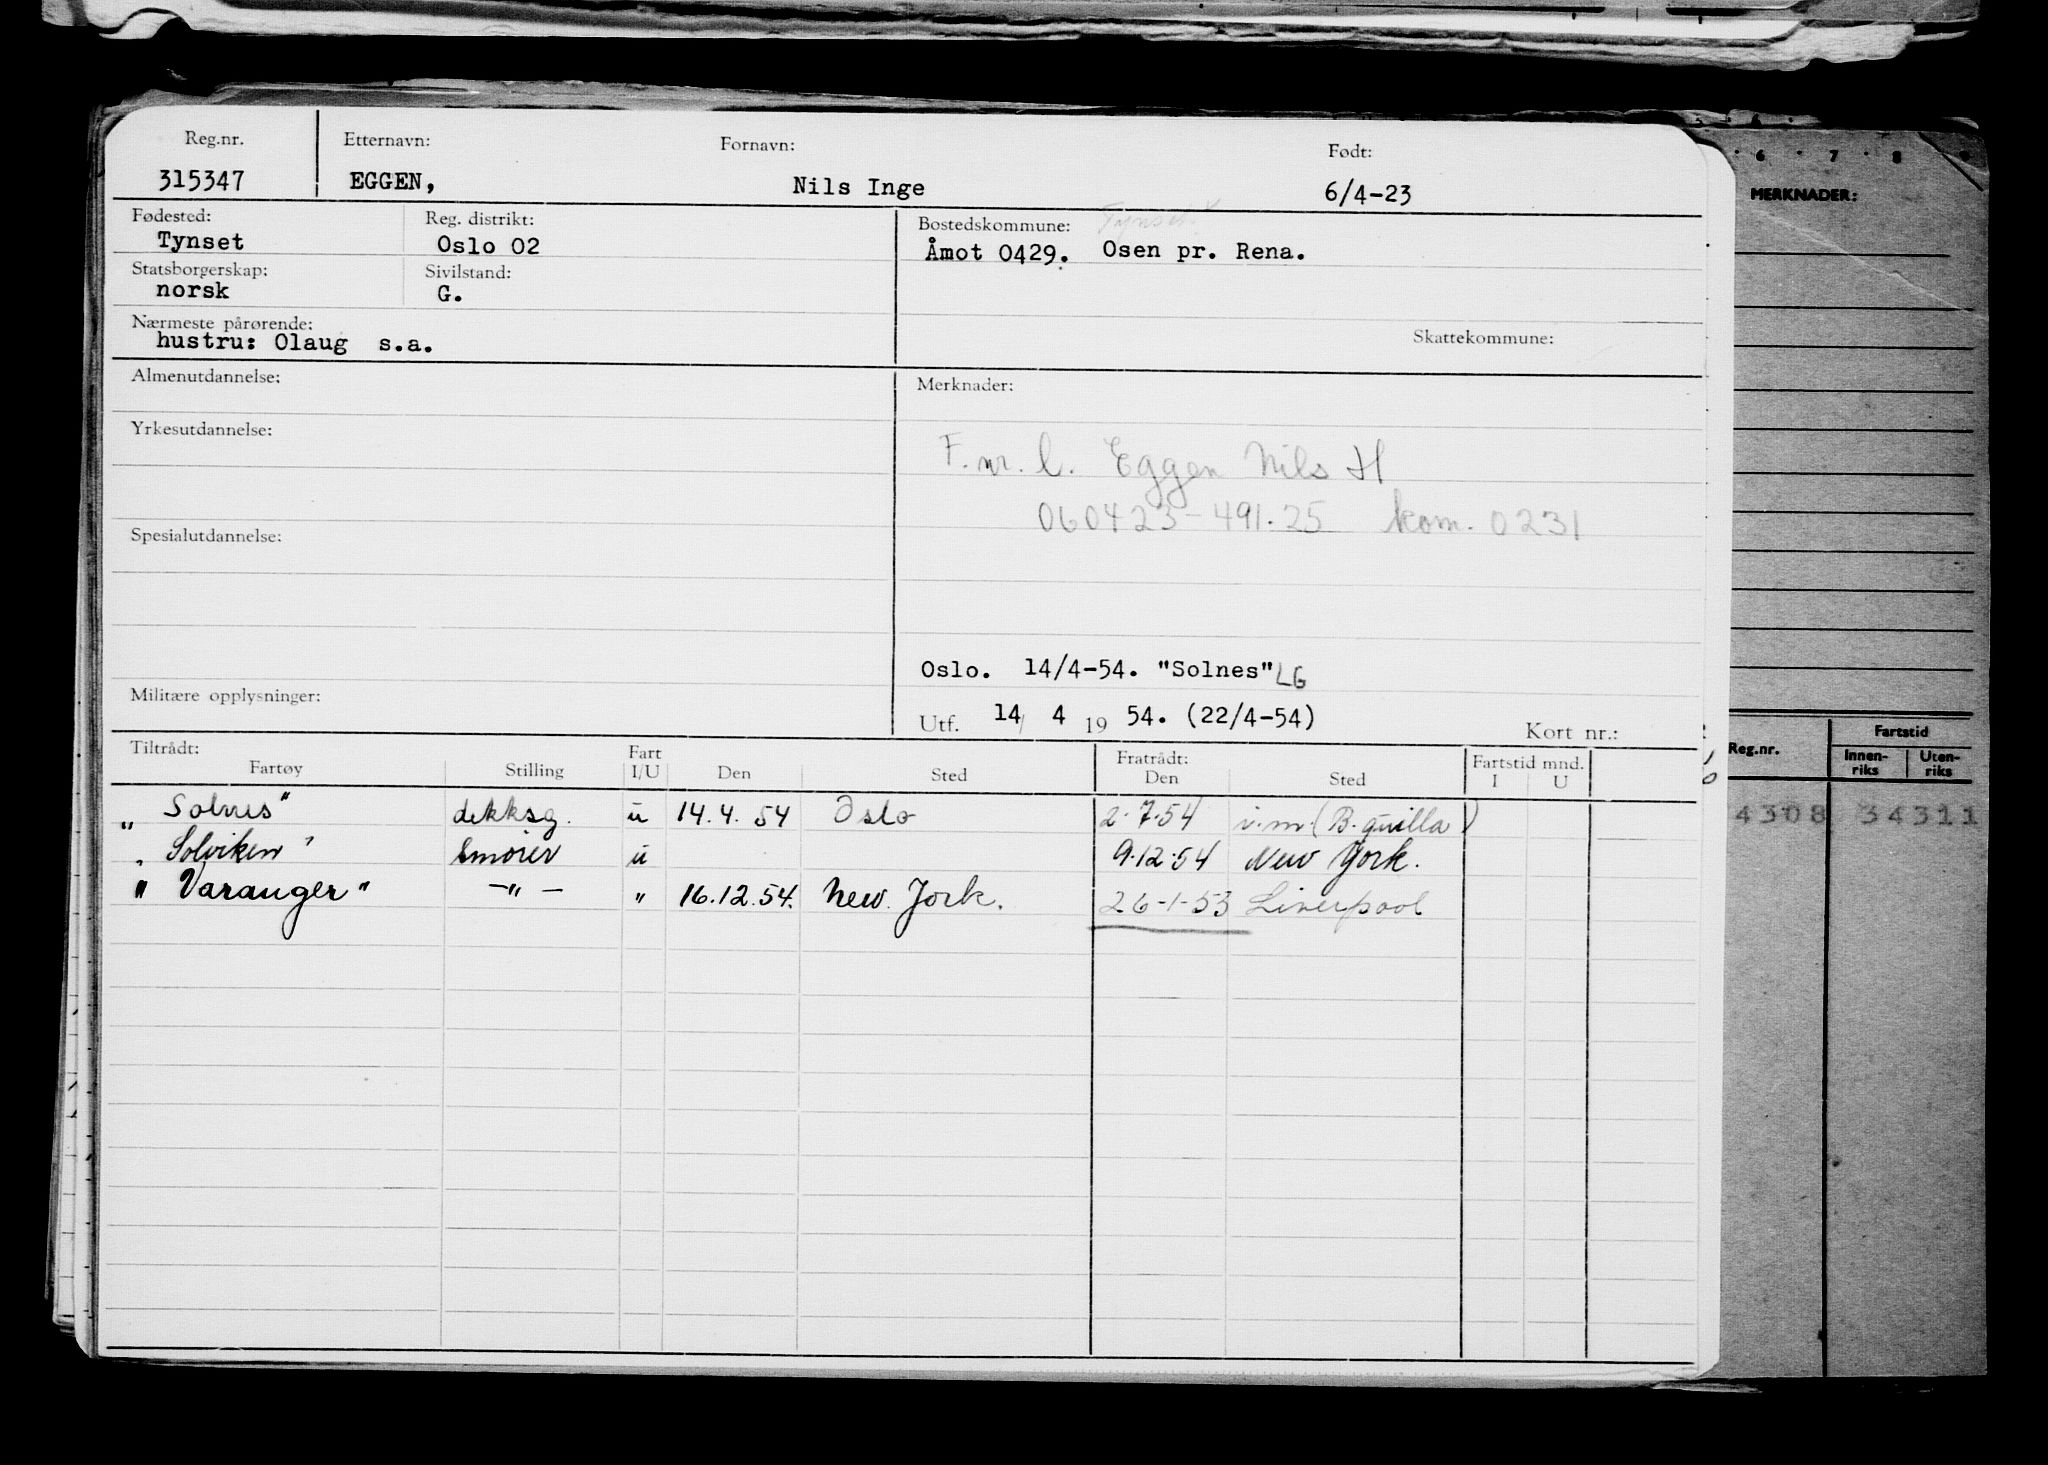 Reg.nr. Etternavn: Fornavn: Født:
315347 EGGEN, Nils Inge 6/4-23
Fødested: Reg. distrikt: Bostedskommune: Tynset
Tynset Oslo 02 Åmot 0429. Osen pr. Rena.
Statsborgerskap: Sivilstand:
norsk G.
Nærmeste pårørende: Skattekommune:
hustru: Olaug s.a.
Almenutdannelse: Merknader:
Yrkesutdannelse:
F.nr. l. Eggen Nils H
060423-491.25 kom. 0231
Spesialutdannelse:
Oslo. 14/4-54. "Solnes" LG
Militære opplysninger:
Utf. 14/ 4 19 54. (22/4-54) Kort nr.:
Tiltrådt: Fart Fratrådt: Fartstid mnd.
Fartøy Stilling I/U Den Sted Den Sted I U
„ Solnes" dekksg. u 14.4.54 Oslo 2.7.54 i.m. (B.quilla)
„ Solviken" Smører u 9.12.54 New York.
" Varanger" -"- " 16.12.54. New. York. 26-1-53 Liverpool
6 7 8 9
MERKNADER:
Reg.nr. Fartstid
Innen-riks Uten-riks
4308 34311